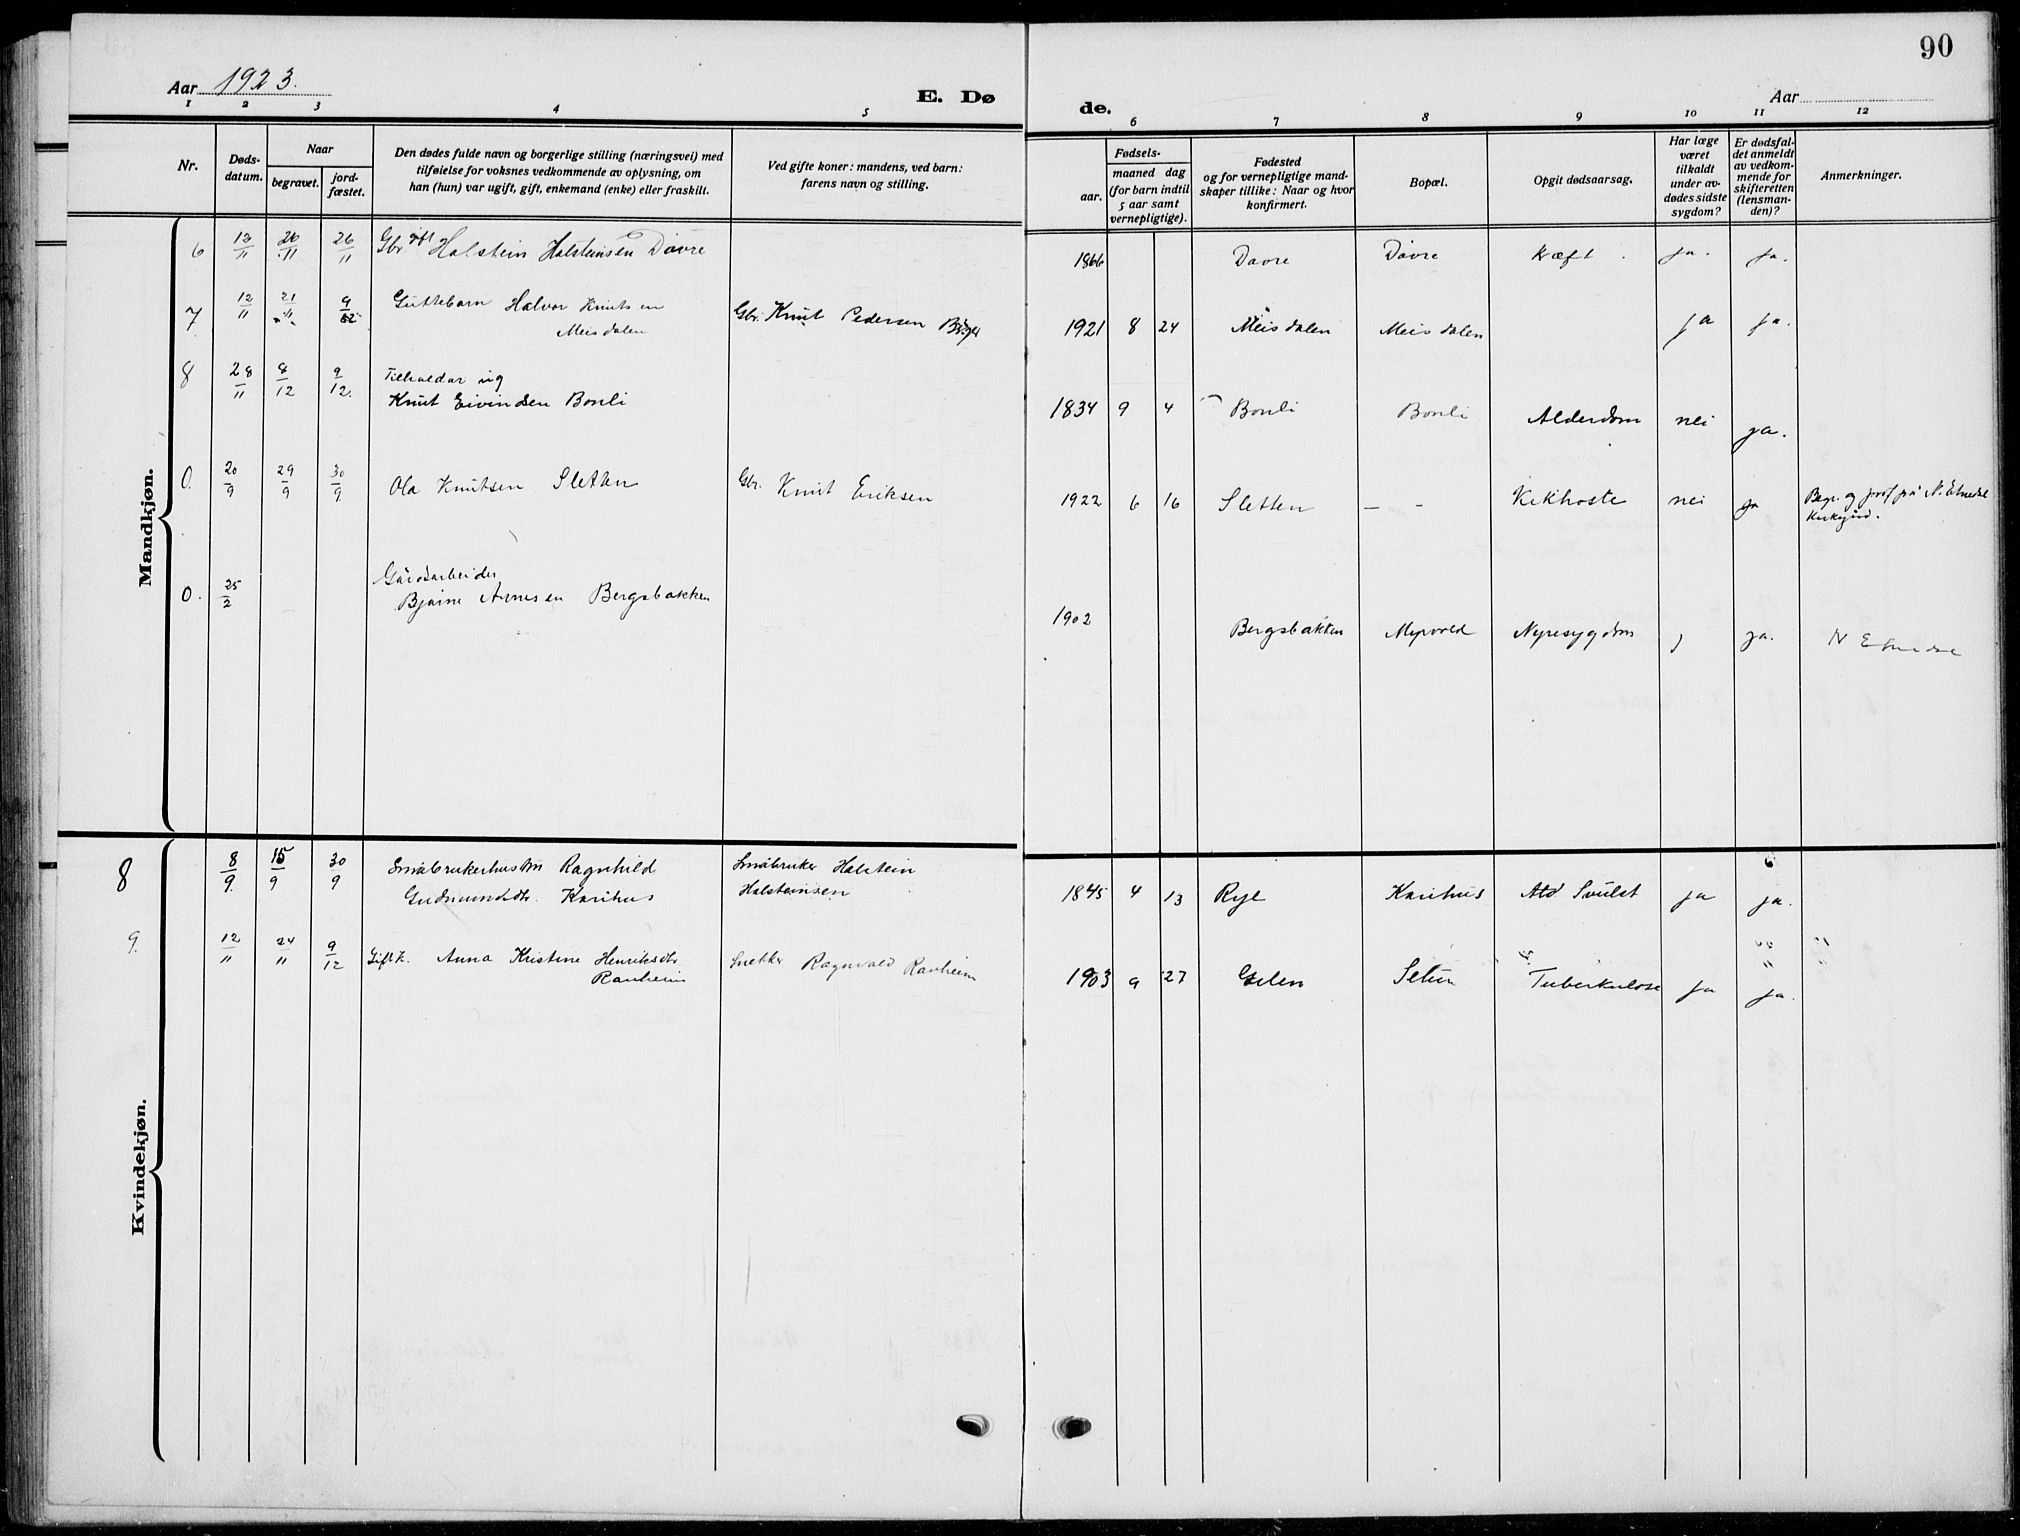 90
Aar 1923.
E. Dø
de.
Aar
1 2 3 4 5
6 7 8 9 10 11 12
Nr.
Døds-
datum.
Naar
begravet.
jord-
fæstet.
Den dødes fulde navn og borgerlige stilling (næringsvei) med
tilføielse for voksnes vedkommende av oplysning, om
han (hun) var ugift, gift, enkemand (enke) eller fraskilt.
Ved gifte koner: mandens, ved barn:
farens navn og stilling.
Fødsels-
aar.
maaned dag
(for barn indtil
5 aar samt
vernepligtige).
Fødested
og for vernepligtige mand-
skaper tillike: Naar og hvor
konfirmert.
Bopæl.
Opgit dødsaarsag.
Har læge
været
tilkaldt
under av-
dødes sidste
sygdom?
Er dødsfal-
det anmeldt
av vedkom-
mende for
skifteretten
(lensman-
den)?
Anmerkninger.
Mandkjøn.
6 13/11 26/11 26/11 Gbr. Halstein Halsteinsen Døvre 1866 Døvre Døvre Kræft ja. ja.
7 12/11 21/11 9/12 Guttebarn Halvor Knutsen
Meisdalen
Gbr. Knut Pedersen 1921 8 24 Meisdalen Meisdalen ja ja.
8 28/11 8/12 9/12. Tilholdar ug
Knut Eivindsen Bonli 1834 9 4 Bonli Bonli Alderdom nei ja.
0. 20/9 29/9 30/9 Ola Knutsen Sletten Gbr. Knut Eriksen 1922 6 16 Sletten — - Kikhoste nei ja Begr. og jordf. på N. Etnedal
Kirkegård.
0. 25/2 Gårdsarbeider
Bjarne Arnesen Bergsbakken 1902 Bergsbakken Myrvold Nyresygdom j ja. N Etnedal
Kvindekjøn.
8 8/9 15/9 30/9 Småbrukerhustru Ragnhild
Gudmundsdtr. Karihus
Småbruker Halstein
Halsteinsen
1845 4 13 Rye Karihus Svulst ja ja.
9. 12/11 24/11 9/12 Gift k. Anna Kristine Henriksdtr
Ranheim
Snekker Ragnvald Ranheim 1903 9 27 Selun Tuberkulose ja ja.